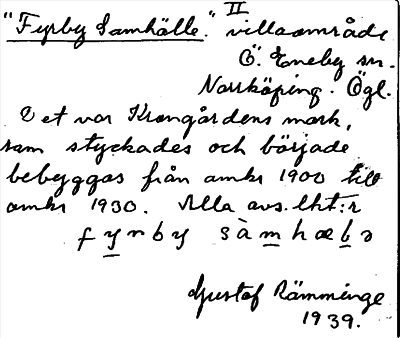 "Fyrby Samhälle." II villaområde
Ö. Eneby sn.
Norrköping. Ögl.
Det var Krongårdens mark,
som styckades och började
bebyggas från omkr 1900 till
omkr 1930. Alla avs. lht:r
fynby
Gustaf Rämminge
1939.